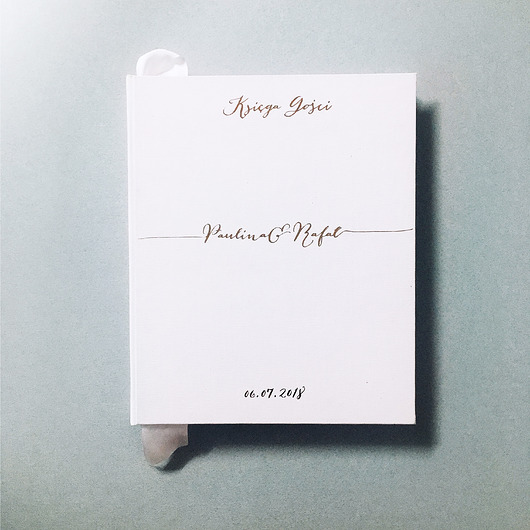 Księga Gości
Paulina & Rafał
06.07.2018